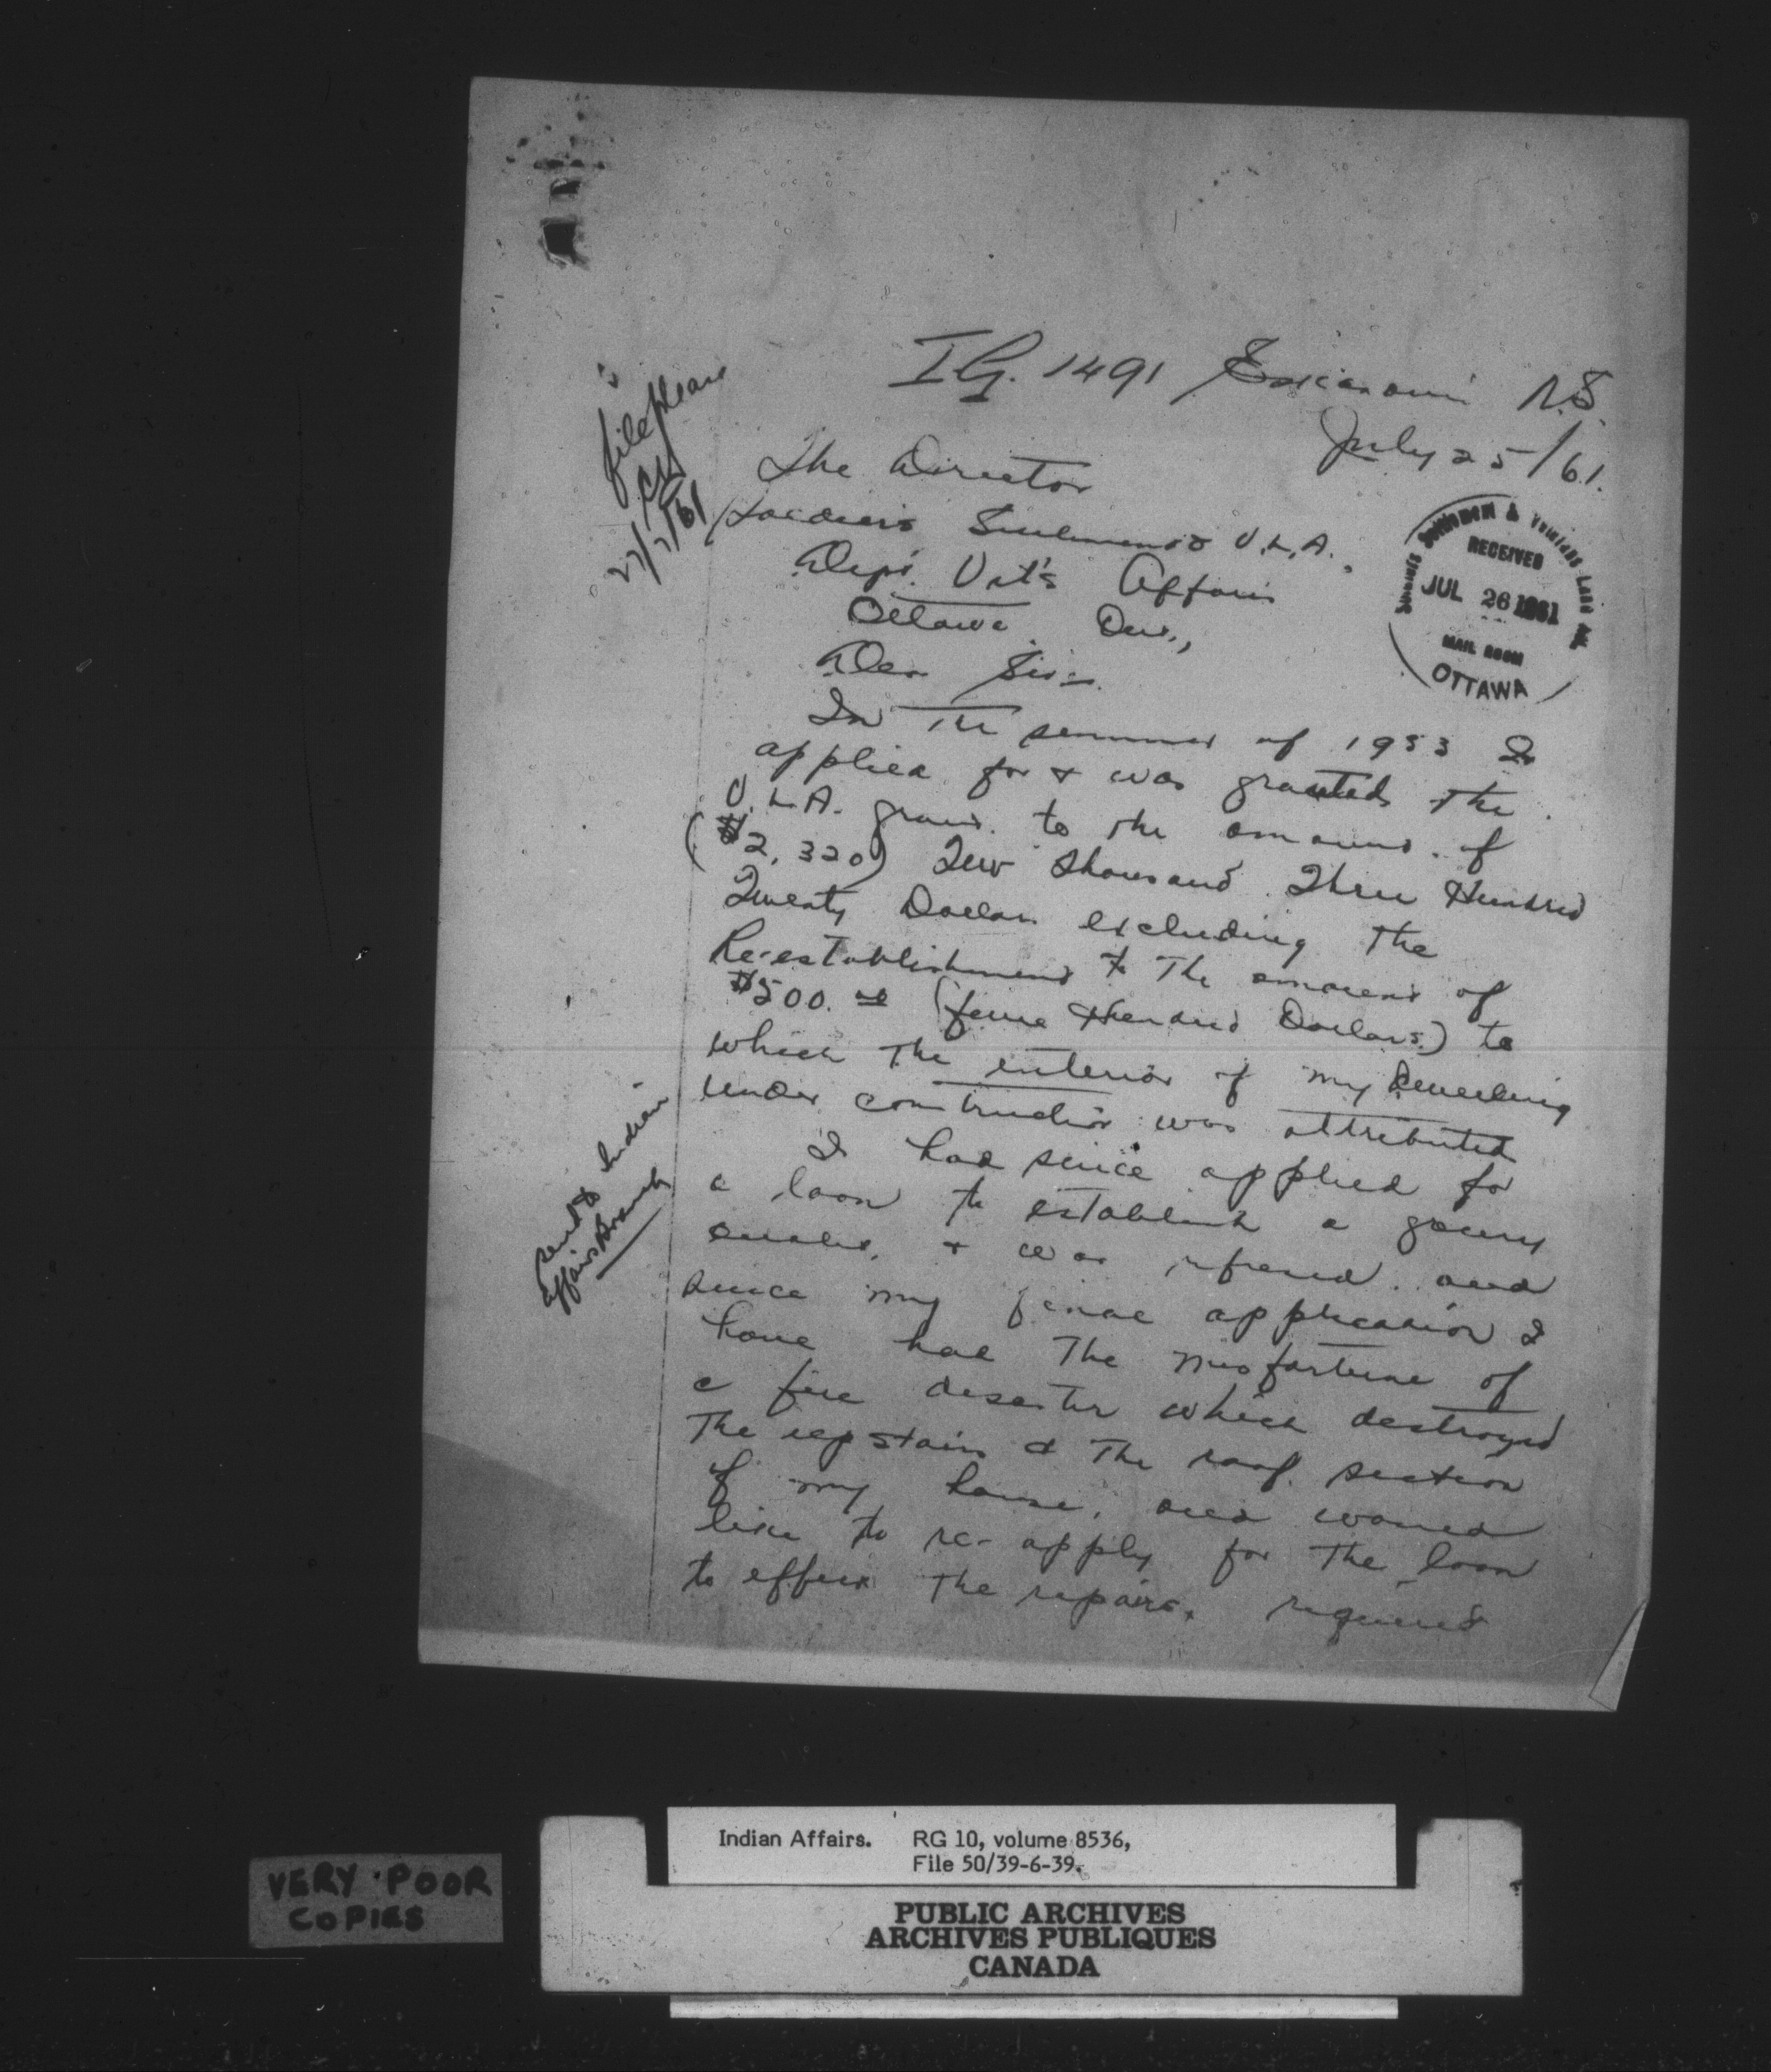 I.G. 1491 Eskasoni N.S.
July 25/61.
file please
27/7/61
The Director
Soldiers Settlement & V.L.A.
Dep't. Vet's Affairs
Ottawa Ont.,
Soldiers Settlement & Veterans Land Act
RECEIVED
JUL 26 1961
MAIL ROOM
OTTAWA
Dear Sir:-
In the summer of 1953 I
applied for & was granted the
V.L.A. grant to the amount of
($2,320) Two Thousand Three Hundred
Twenty Dollars excluding the
Re-establishment to the amount of
$500. (five Hundred Dollars) to
which the interior of my dwelling
under construction was attributed
I had since applied for
a loan to establish a grocery
& was refused. and
since my final application I
have had the misfortune of
a fire disaster which destroyed
The upstairs & the roof section
of my house, and would
like to re-apply for the loan
to effect the repairs. required
Send to Indian
Affairs Branch
Indian Affairs. RG 10, volume 8536,
File 50/39-6-39.
VERY POOR
COPIES
PUBLIC ARCHIVES
ARCHIVES PUBLIQUES
CANADA